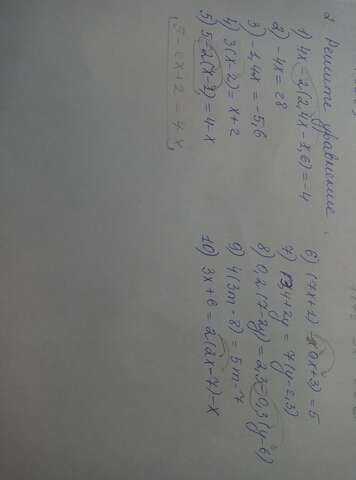 2 Решите уравнение.
1) 4x - 2(2,4x - 1,6) = -4
2) -4x = 28
3) -1,4x = -5,6
4) 3(x-2) = x+2
5) 5-2(x-1) = 4-x
5 - 2x + 2 = 4 - x
6) (7x+1) - (6x+3) = 5
7) 13,4+2y = 7(y-2,3)
8) 0,2(7-2y) = 2,3-0,3(y-6)
9) 4(3m-8) = 5m-7
10) 3x+6 = 2(2x-7)-x